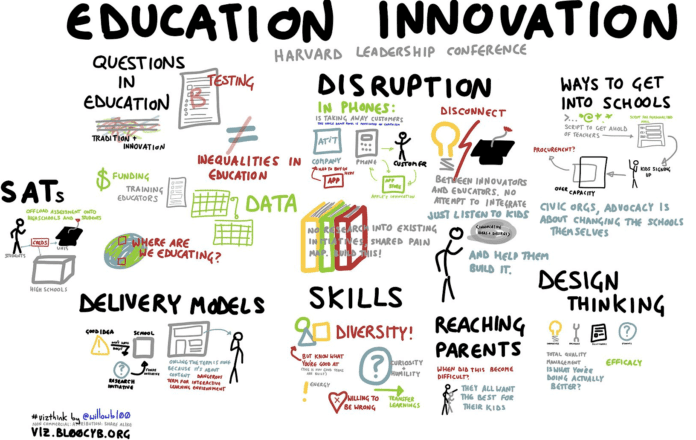 EDUCATION INNOVATION
HARVARD LEADERSHIP CONFERENCE
QUESTIONS
IN
EDUCATION
TRADITION +
INNOVATION
B
TESTING
INEQUALITIES IN
EDUCATION
$ FUNDING
TRAINING
EDUCATORS
DATA
WHERE ARE
WE EDUCATING?
SATs
STUDENTS
HIGH SCHOOLS
DISRUPTION
IN PHONES:
IS TAKING AWAY CUSTOMERS
AT&T
COMPANY
PHONE
CUSTOMER
APP
APP
STORE
APPLE'S INNOVATION
NO RESEARCH INTO EXISTING
INITIATIVES, SHARED PAIN
MAP. BUILD THIS!
DISCONNECT
BETWEEN INNOVATORS
AND EDUCATORS. NO
ATTEMPT TO INTEGRATE
JUST LISTEN TO KIDS
AND HELP THEM
BUILD IT.
WAYS TO GET
INTO SCHOOLS
SCRIPT TO GET AHOLD
OF TEACHERS
PROCUREMENT?
KIDS SIGNING
UP
OVER CAPACITY
CIVIC ORGS, ADVOCACY IS
ABOUT CHANGING THE SCHOOLS
THEMSELVES
DELIVERY MODELS
GOOD IDEA
SCHOOL
RESEARCH
INITIATIVE
ONLINE THE TERM IS OVER
BECAUSE IT'S ABOUT
CONTENT DANGEROUS
TERM FOR INTERACTIVE
LEARNING ENVIRONMENT
SKILLS
DIVERSITY!
BUT KNOW WHAT
YOU'RE GOOD AT
?
CURIOSITY
+
HUMILITY
! ENERGY
WILLING TO
BE WRONG
TRANSFER
LEARNINGS
REACHING
PARENTS
WHEN DID THIS BECOME
DIFFICULT?
THEY ALL WANT
THE BEST FOR
THEIR KIDS
DESIGN
THINKING
TOTAL QUALITY
MANAGEMENT
IS WHAT YOU'RE
DOING ACTUALLY
BETTER?
EFFICACY
#vizthink by @willowbl00
NON COMMERCIAL, ATTRIBUTION, SHARE ALIKE
VIZ.BL00CYB.ORG